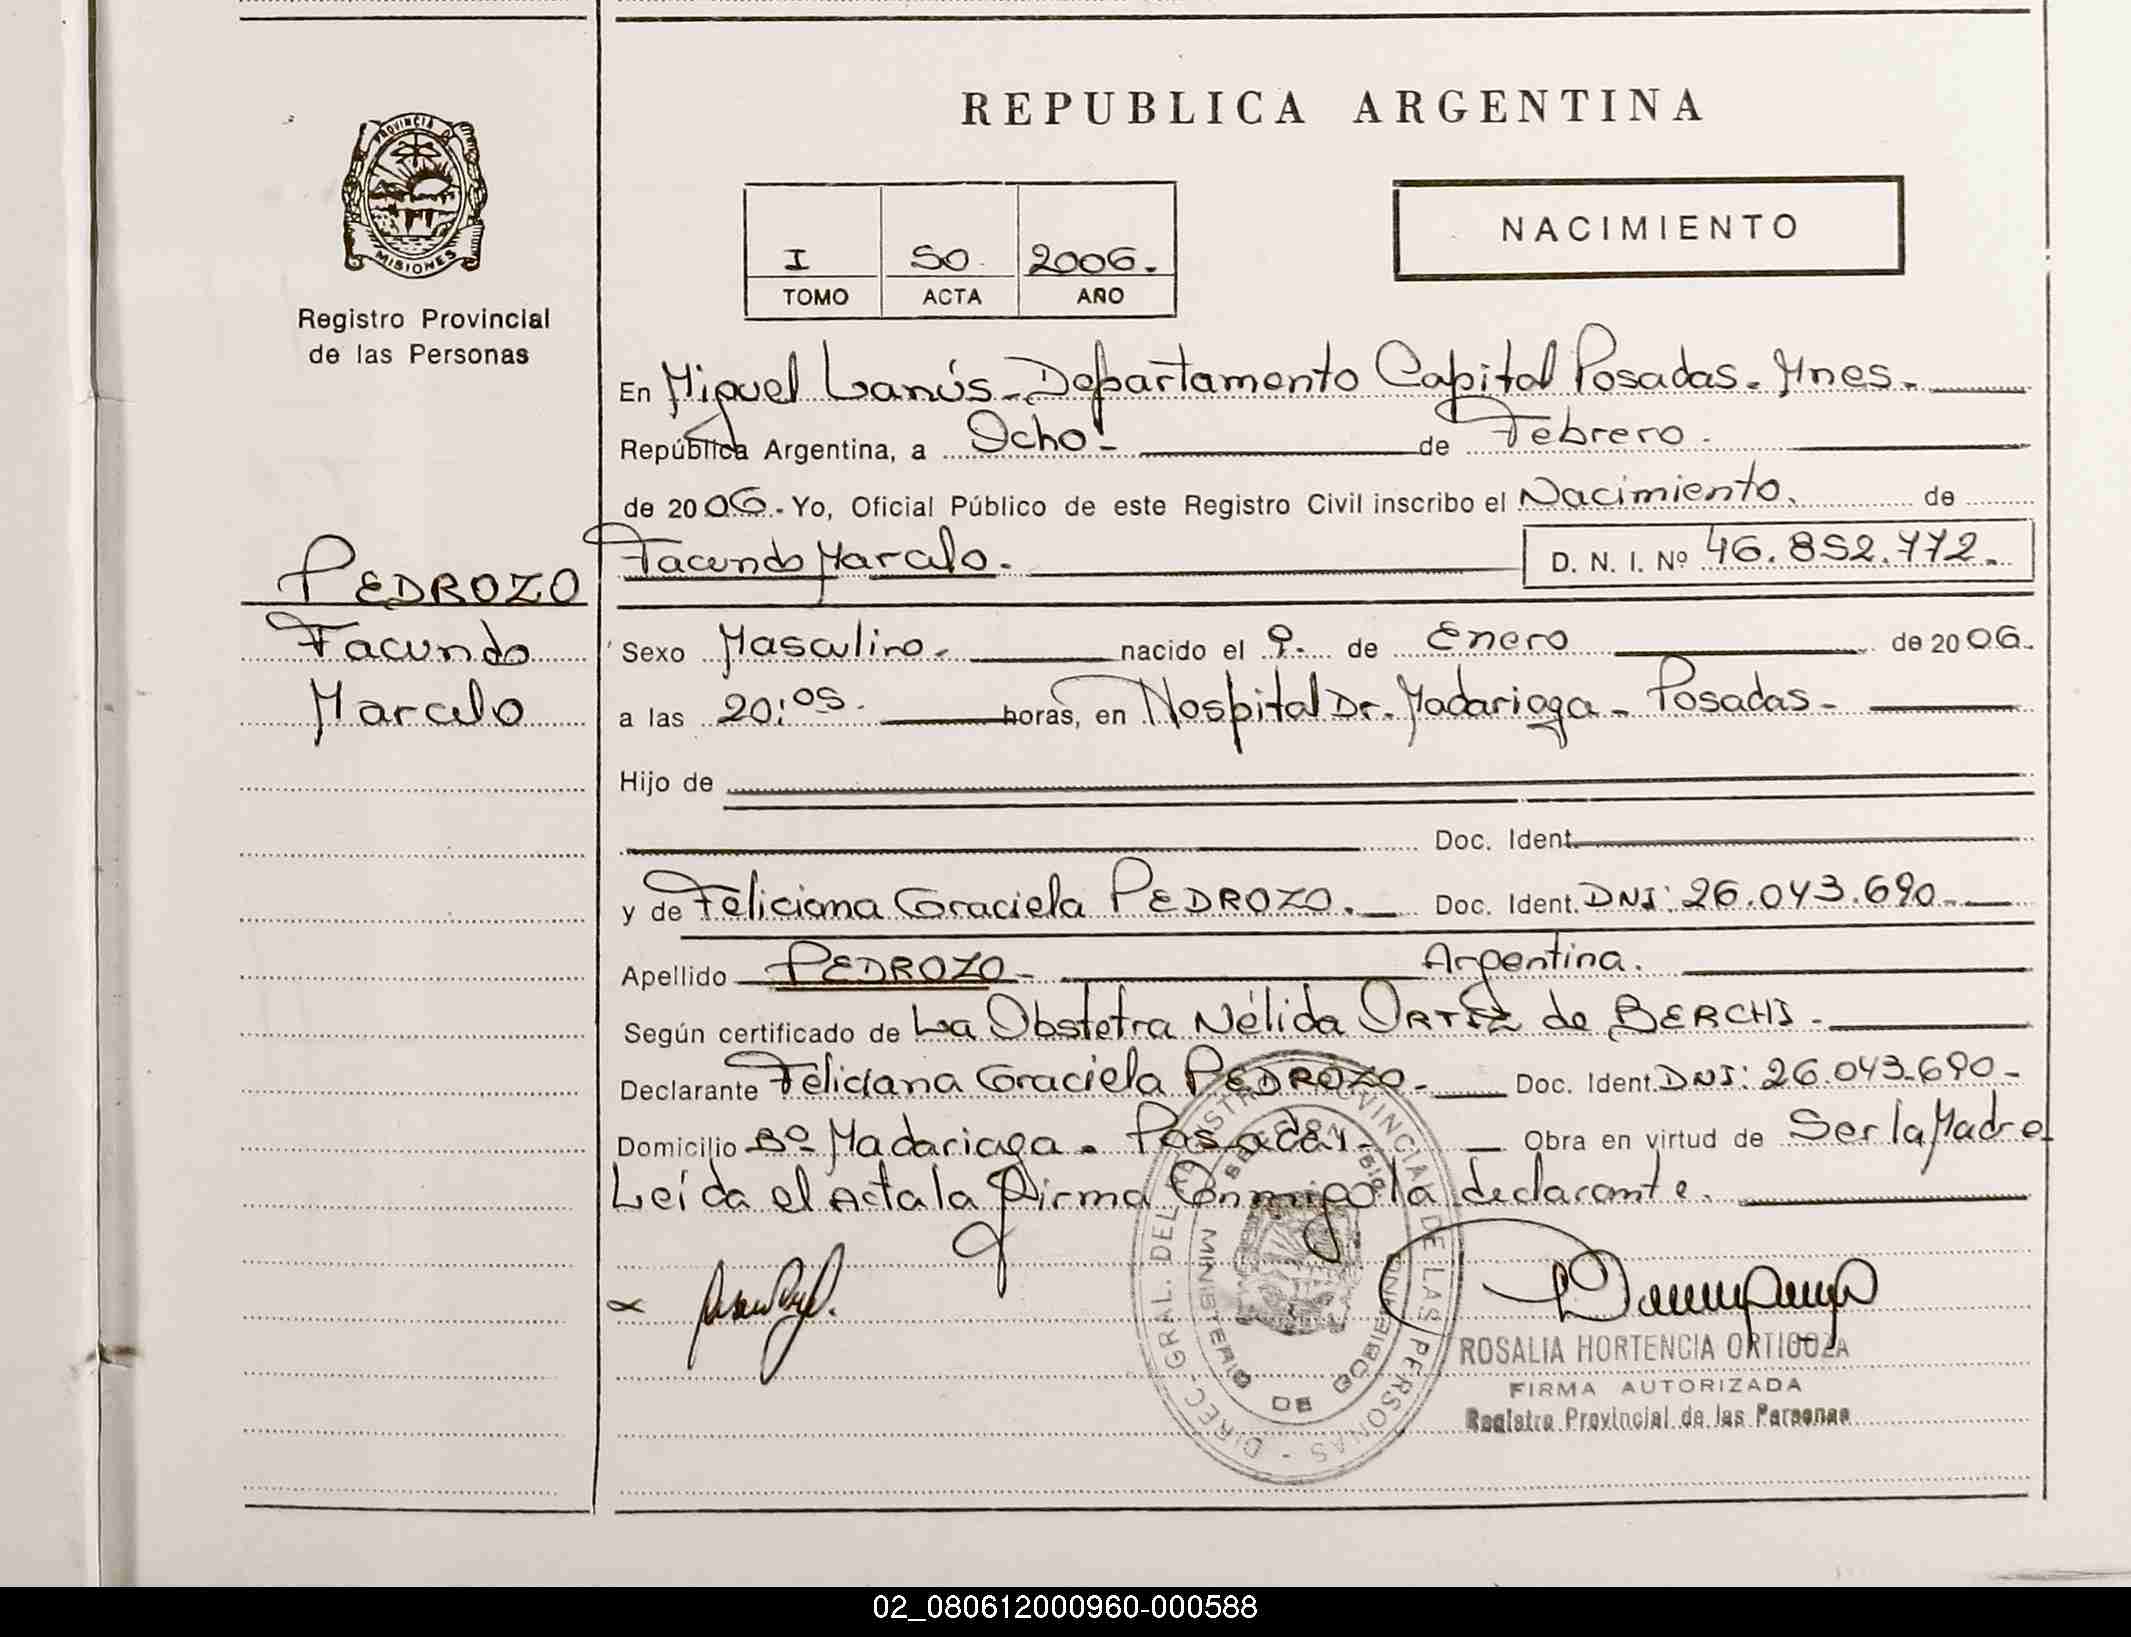 PROVINCIA D
MISIONES
Registro Provincial
de las Personas
PEDROZO
Facundo
Marcelo
REPUBLICA ARGENTINA
NACIMIENTO
I 50 2006.
TOMO ACTA AÑO
En Miguel Lanús - Departamento Capital Posadas. Mnes.
República Argentina, a Ocho - de Febrero.
de 2006.- Yo, Oficial Público de este Registro Civil inscribo el Nacimiento. de
Facundo Marcelo. D. N. I. Nº 46.852.772.
Sexo Masculino. nacido el 9. de Enero de 2006.
a las 20:05. horas, en Hospital Dr. Madariaga - Posadas -
Hijo de
Doc. Ident.
y de Feliciana Graciela PEDROZO. Doc. Ident. DNI: 26.043.690.
Apellido PEDROZO - Argentina.
Según certificado de La Obstetra Nélida ORTIZ de BERCHI.
Declarante Feliciana Graciela PEDROZO - Doc. Ident. DNI: 26.043.690 -
Domicilio Bº Madariaga - Posadas - Obra en virtud de Ser la Madre
Leída el Acta la firma Conmigo la declarante.
DIREC. GRAL. DEL REGISTRO PROVINCIAL DE LAS PERSONAS
MINISTERIO DE GOBIERNO
ROSALIA HORTENCIA ORTIGOZA
FIRMA AUTORIZADA
Registro Provincial de las Personas
02_080612000960-000588